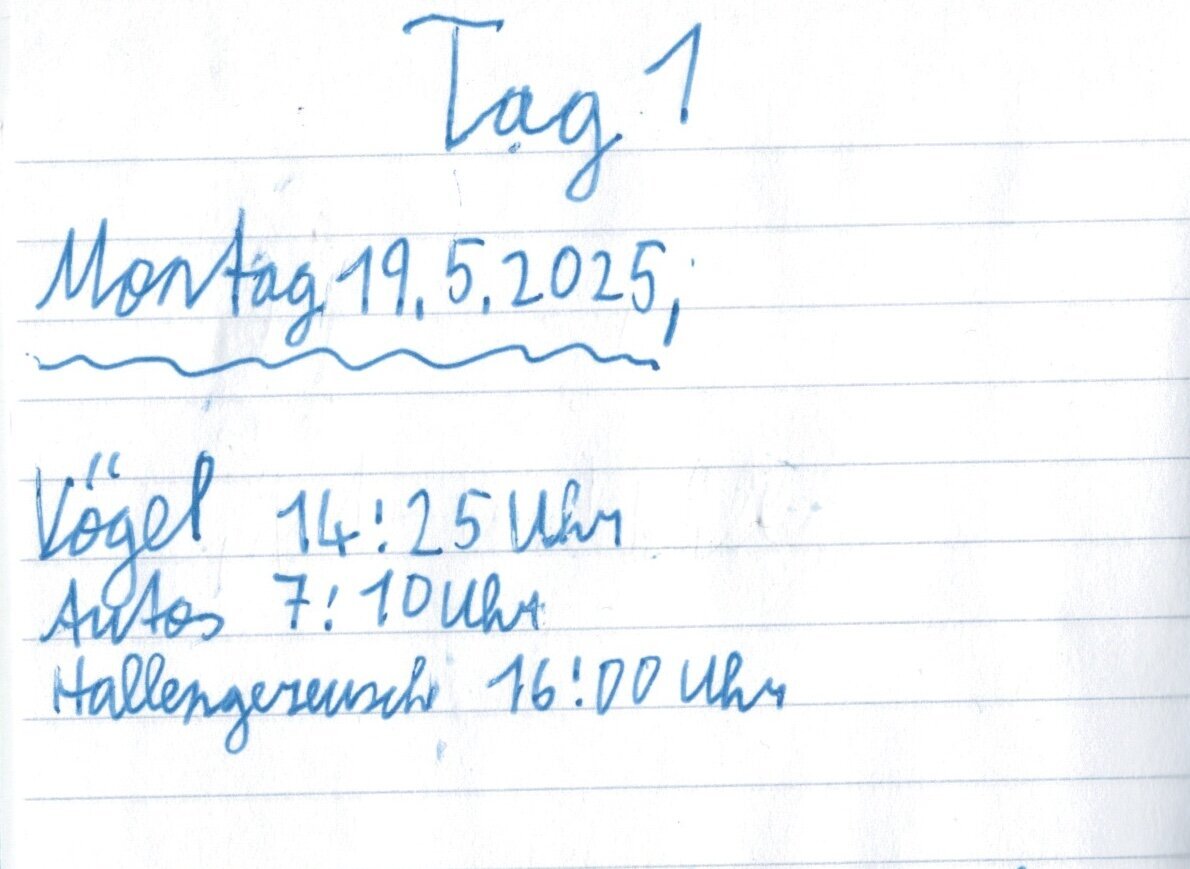 Tag 1
Montag 19.5.2025,
Vögel 14:25 Uhr
Autos 7:10 Uhr
Hallengereusch 16:00 Uhr